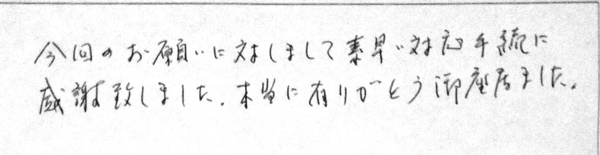 今回のお願いに対しまして素早い対応手続に
感謝致しました。本当に有りがとう御座居ました。